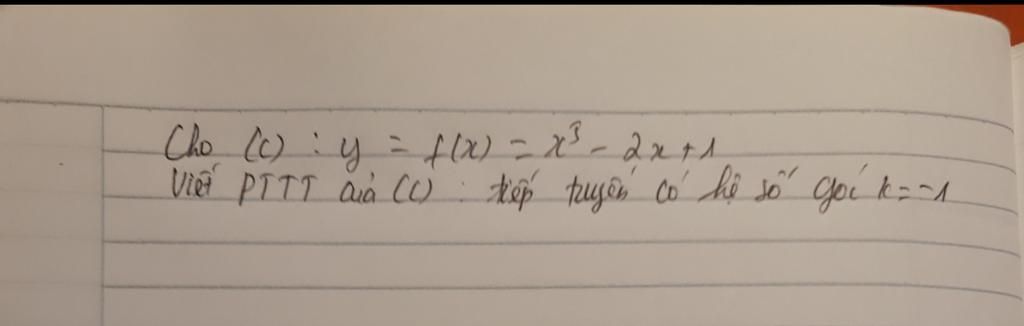 Cho (C) : y = f(x) = x³ - 2x + 1
Viết PTTT của (C) : tiếp tuyến có hệ số góc k = -1